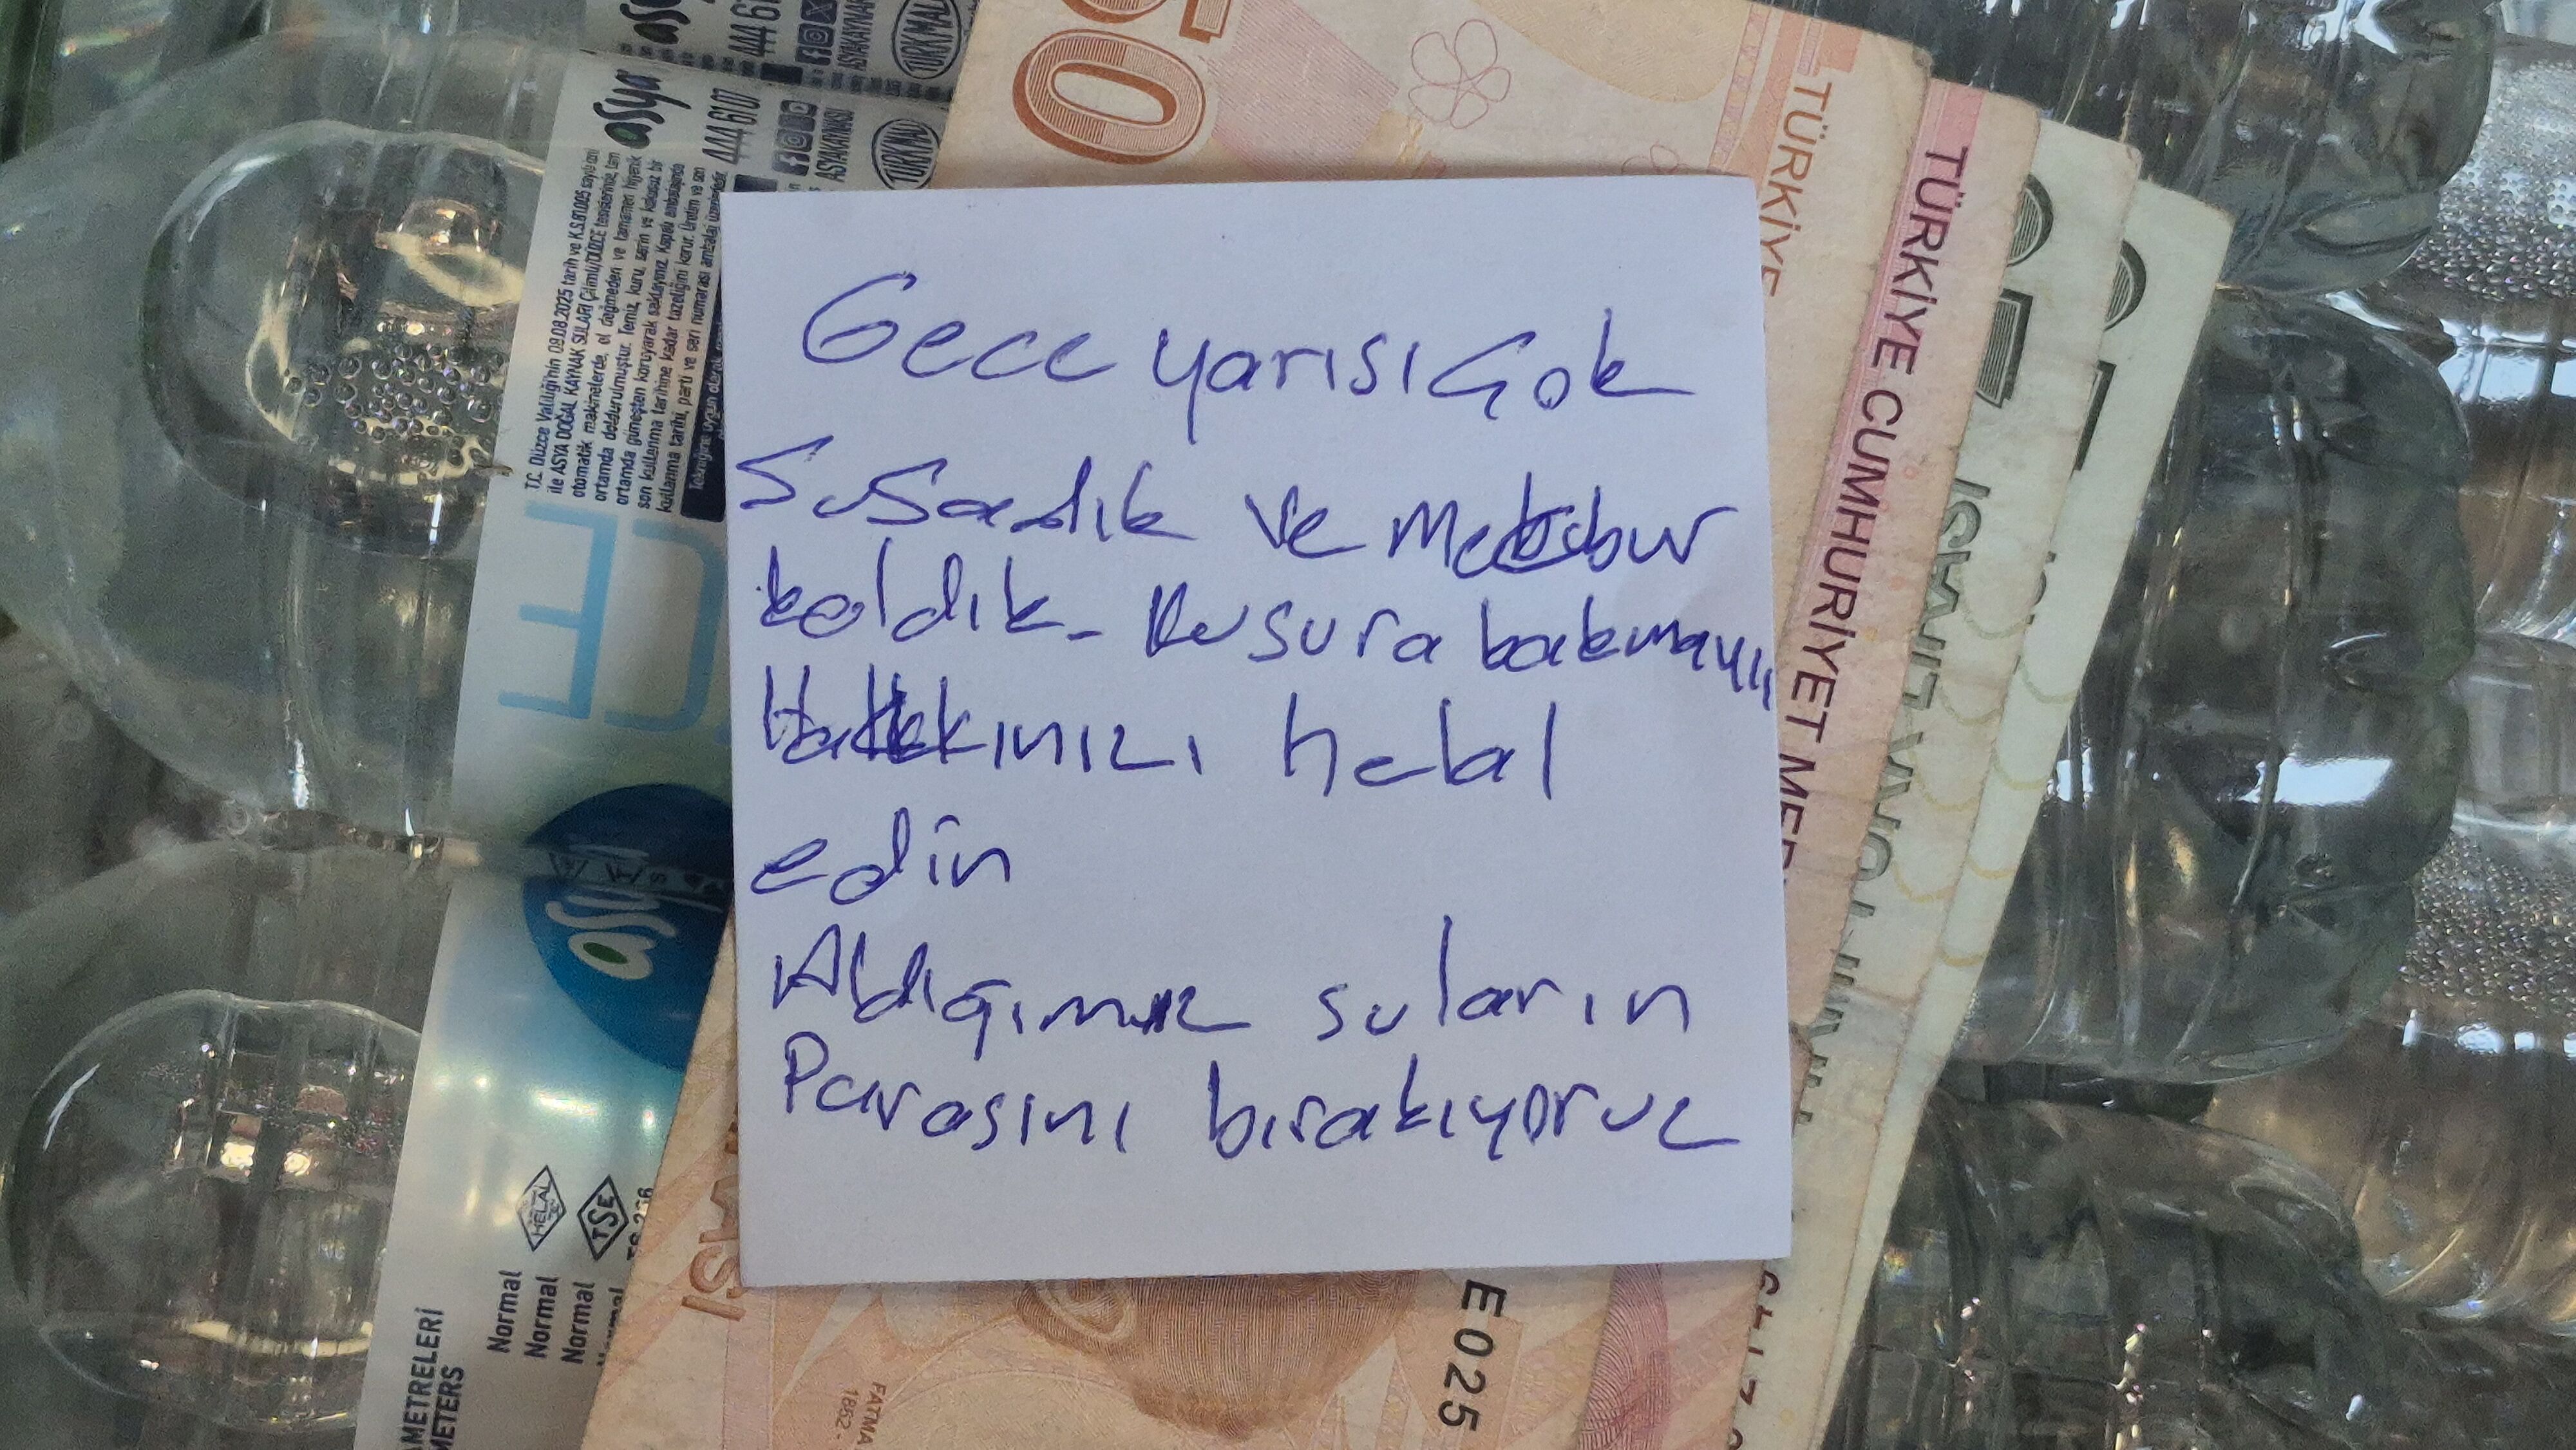 Gece yarısı çok
Susadık ve Mecbur
kaldık- Kusura bakmayın
Hakkınızı helal
edin
Aldığımız suların
Parasını bırakıyoruz
50
TÜRKİYE
TÜRKİYE CUMHURİYET MER
E025
FATMA
1862 -
asya
444 61 07
ASYAKAYNAK
TÜRK MALI
asya
444 61 07
ASYAKAYNAK
T.C. Düzce Valiliği'nin 08.08.2025 tarih ve K.S.81.005 sayılı izni
ile ASYA DOĞAL KAYNAK SULARI Çilimli/DÜZCE tesislerinde, tam
otomatik makinelerde, el değmeden ve tamamen hijyenik
ortamda doldurulmuştur. Temiz, kuru, serin ve kokusuz bir
ortamda güneşten koruyarak saklayınız. Kapalı ambalajında
son kullanma tarihine kadar tazeliğini korur. Üretim ve son
kullanma tarihi, parti ve seri numarası ambalaj üzerindedir.
asya
HELAL
TSE
Normal
Normal
Normal
AMETRELERİ
METERS